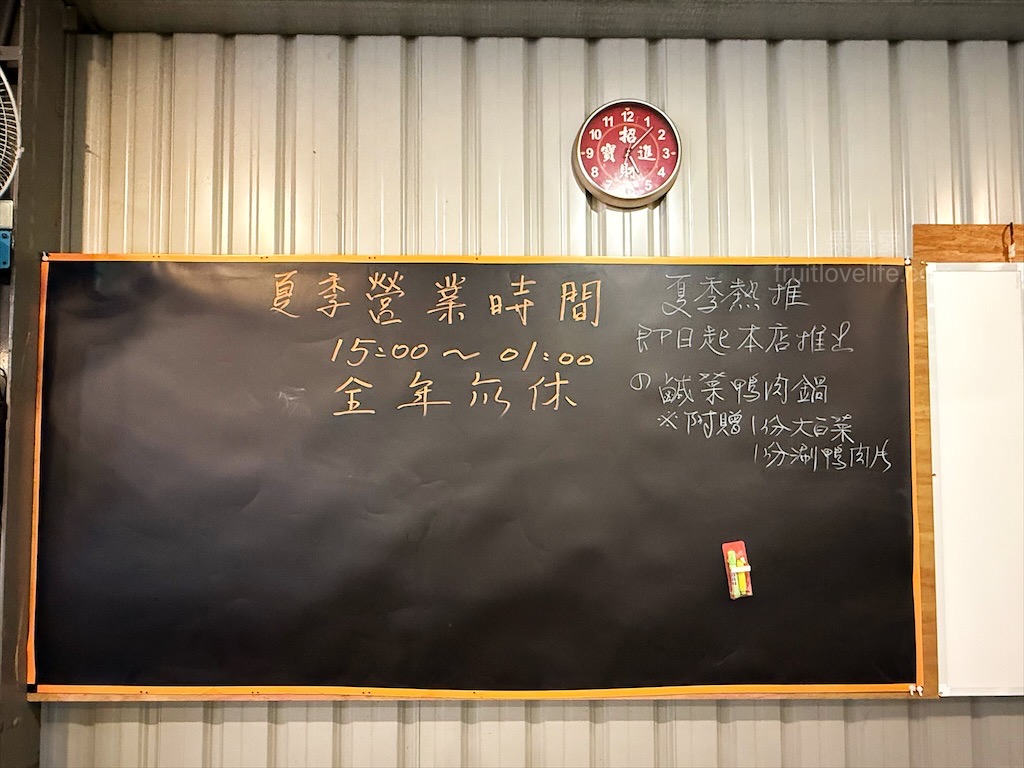 12
11 1
10 2
9 3
8 4
7 6 5
招
寶 進
財
fruitlovelife.c
夏季營業時間
15:00 ~ 01:00
全年無休
夏季熱推
即日起本店推出
鹹菜鴨肉鍋
※附贈1份大白菜
1份涮鴨肉片